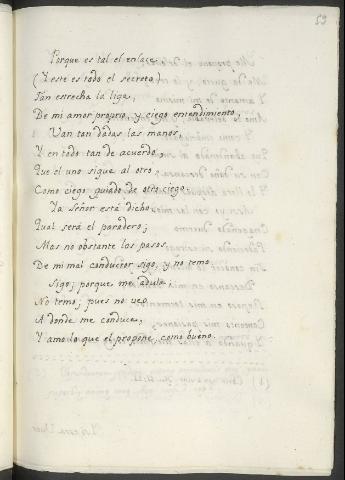 59
Porque es tal el enlace
(Y este es todo el secreto)
Tan estrecha la liga,
De mi amor proprio, y ciego entendimiento,
Van tan dadas las manos,
Y en todo tan de acuerdo,
Que el uno sigue al otro,
Como ciego guiado de otro ciego.
Ya Señor está dicho,
Qual será el paradero;
Mas no obstante los pasos
De mi mal conductor sigo, y no temo.
Sigo; porque me adula
No temo; pues no veo
A donde me conduce,
Y amo lo que el propone, como bueno.